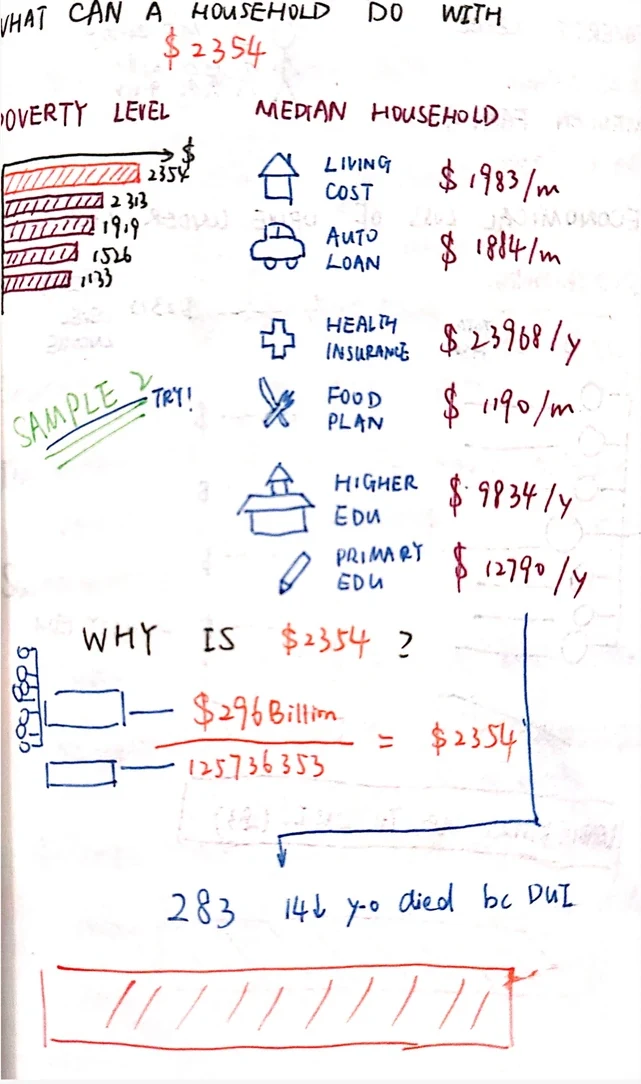 WHAT CAN A HOUSEHOLD DO WITH
$2354
POVERTY LEVEL
$
2354
2313
1919
1526
1133
SAMPLE 2
TRY!
MEDIAN HOUSEHOLD
LIVING COST $1983/m
AUTO LOAN $1884/m
HEALTH INSURANCE $23968/y
FOOD PLAN $1190/m
HIGHER EDU $9834/y
PRIMARY EDU $12790/y
WHY IS $2354?
$296Billion
125736353
= $2354
283 14↓ y-o died bc DUI